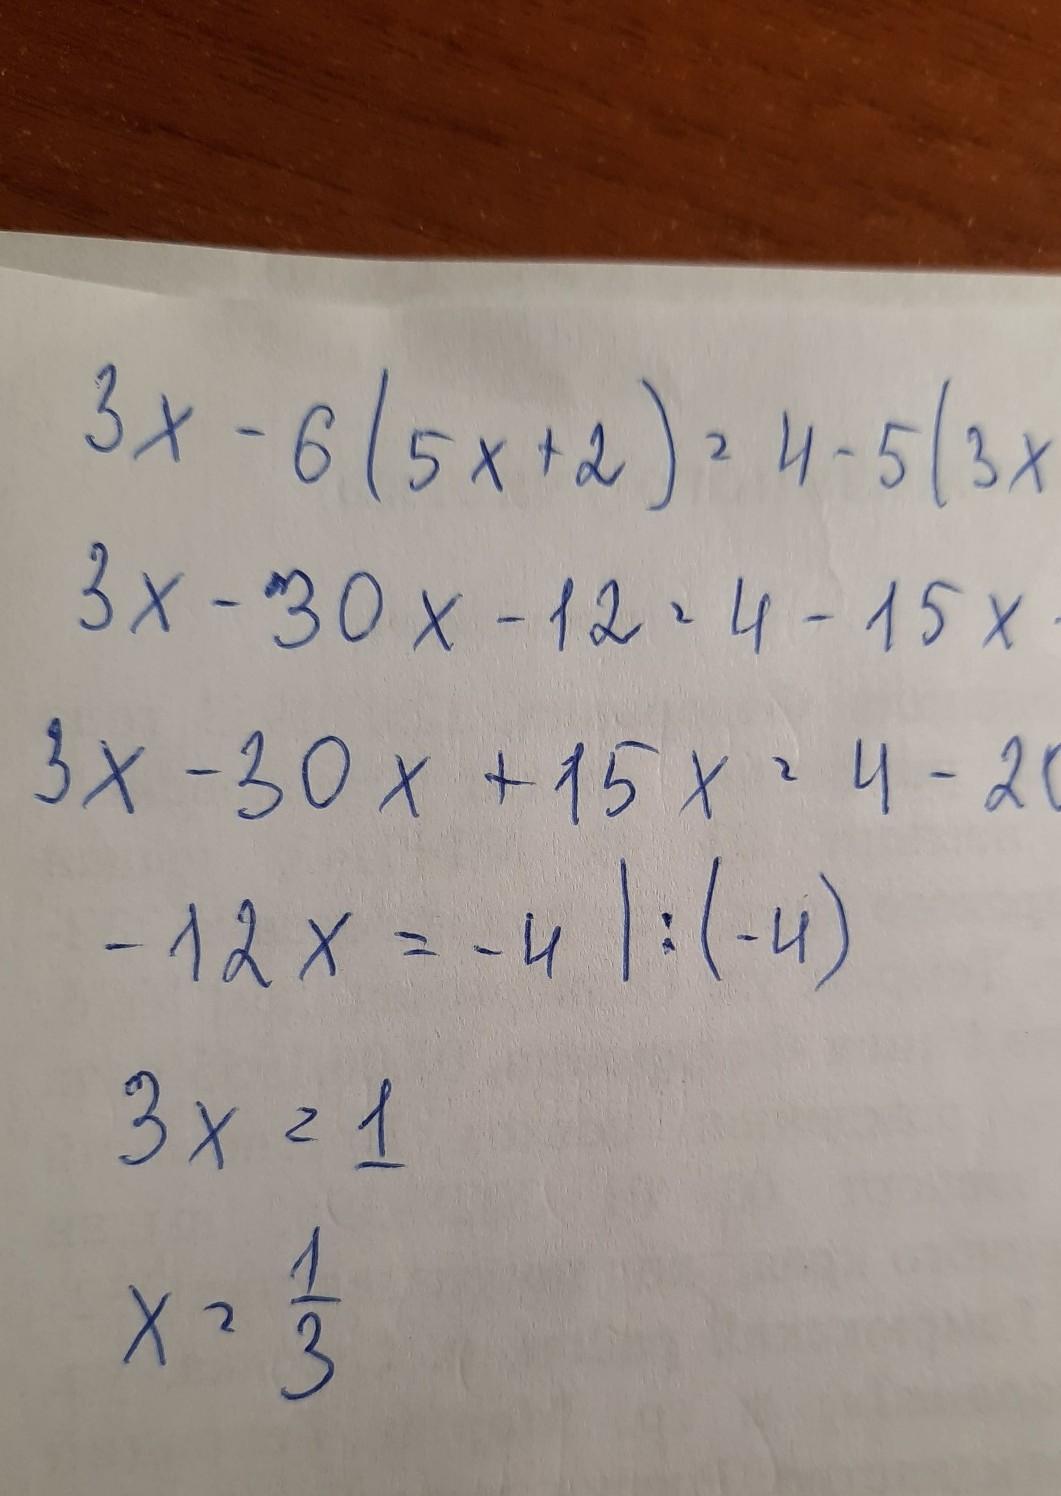 3x - 6(5x+2) = 4 - 5(3x
3x - 30x - 12 = 4 - 15x -
3x - 30x + 15x = 4 - 20
-12x = -4 |:(-4)
3x = 1
x = 1/3